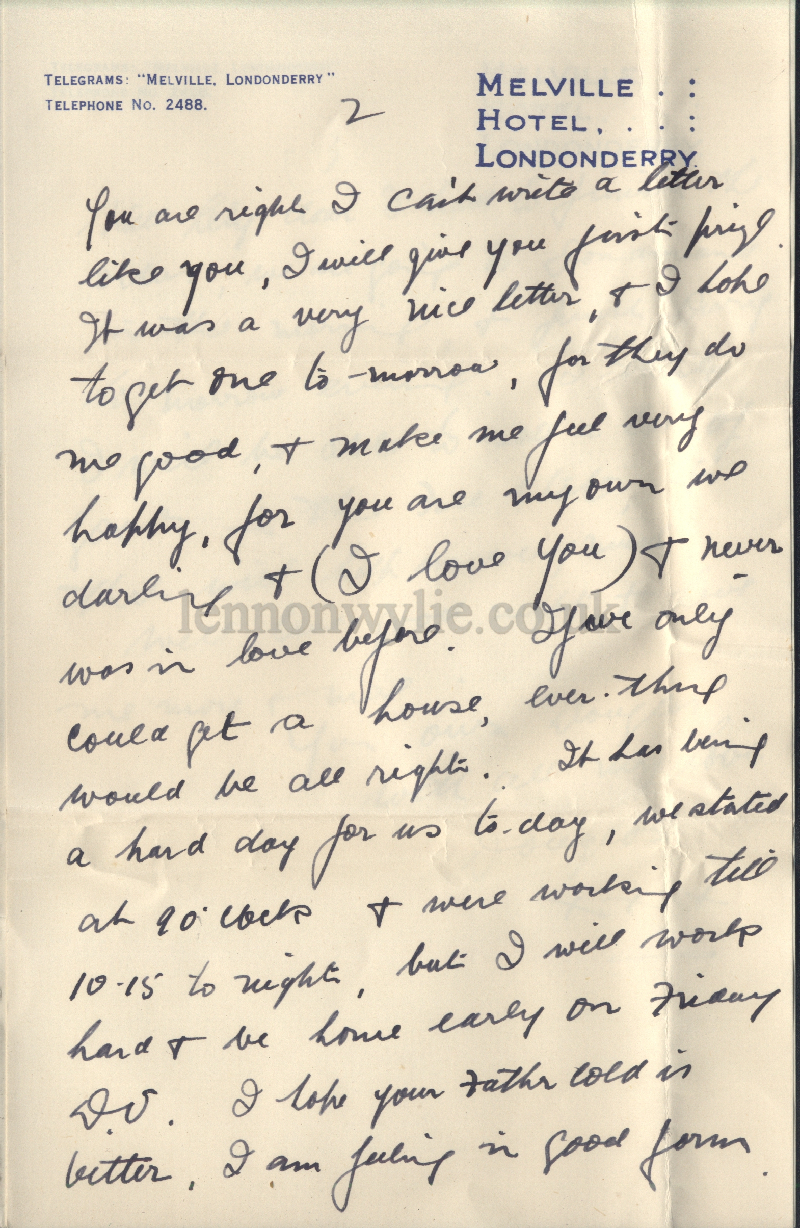 TELEGRAMS: "MELVILLE, LONDONDERRY"
TELEPHONE No. 2488.
2
MELVILLE . :
HOTEL, . . :
LONDONDERRY
You are right I can't write a letter
like you, I will give you first prize.
It was a very nice letter, & I hope
to get one to-morrow, for they do
me good, & make me feel very
happy, for you are my own we
darling & (I love you) & never
was in love before. If we only
could get a house, ever-thing
would be all right. It has being
a hard day for us to-day, we stated
at 9 o'clock & were working till
10-15 to night, but I will work
hard & be home early on Friday
D.V. I hope your Father cold is
better, I am feeling in good form.
lennonwylie.co.uk